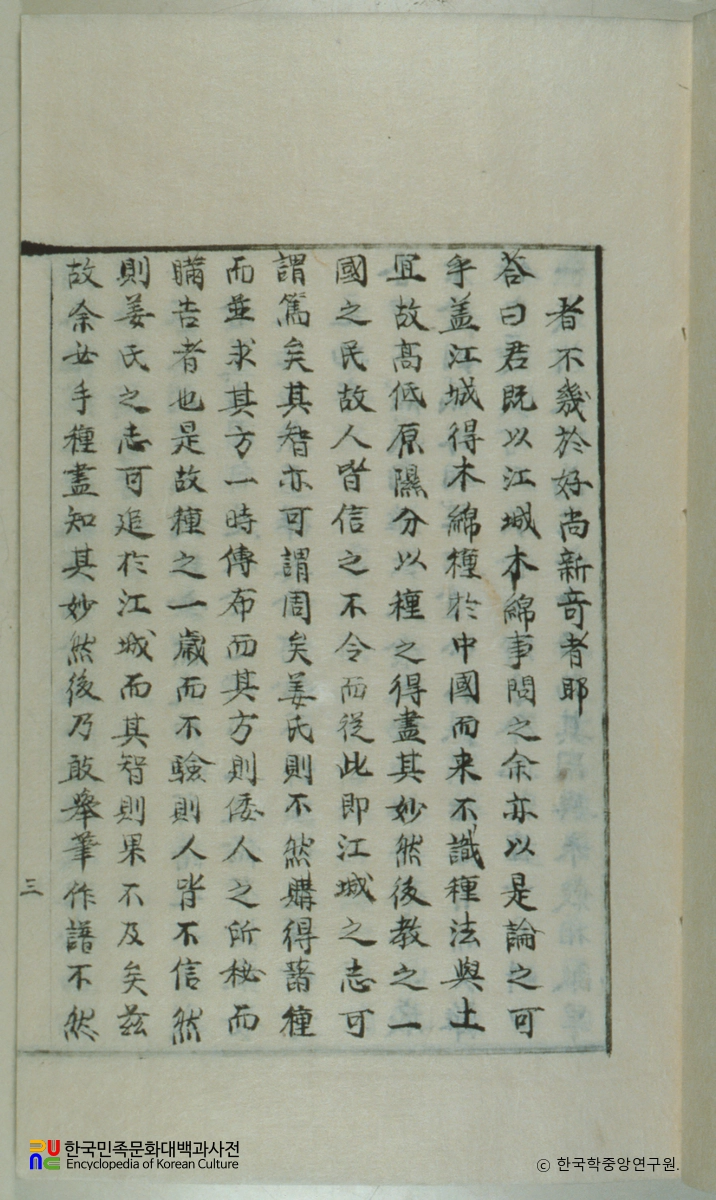 者不幾於好尚新奇者耶
答曰君既以江城木綿事問之余亦以是論之可
乎盖江城得木綿種於中國而来不識種法與土
宜故高低原隰分以種之得盡其妙然後教之一
國之民故人皆信之不令而従此即江城之志可
謂篤矣其智亦可謂周矣姜氏則不然購得藷種
而並求其方一時傳布而其方則倭人之所秘而
瞞告者也是故種之一歳而不驗則人皆不信然
則姜氏之志可追於江城而其智則果不及矣茲
故余女手種盡知其妙然後乃敢擧筆作譜不然
三
한국민족문화대백과사전
Encyclopedia of Korean Culture
© 한국학중앙연구원.